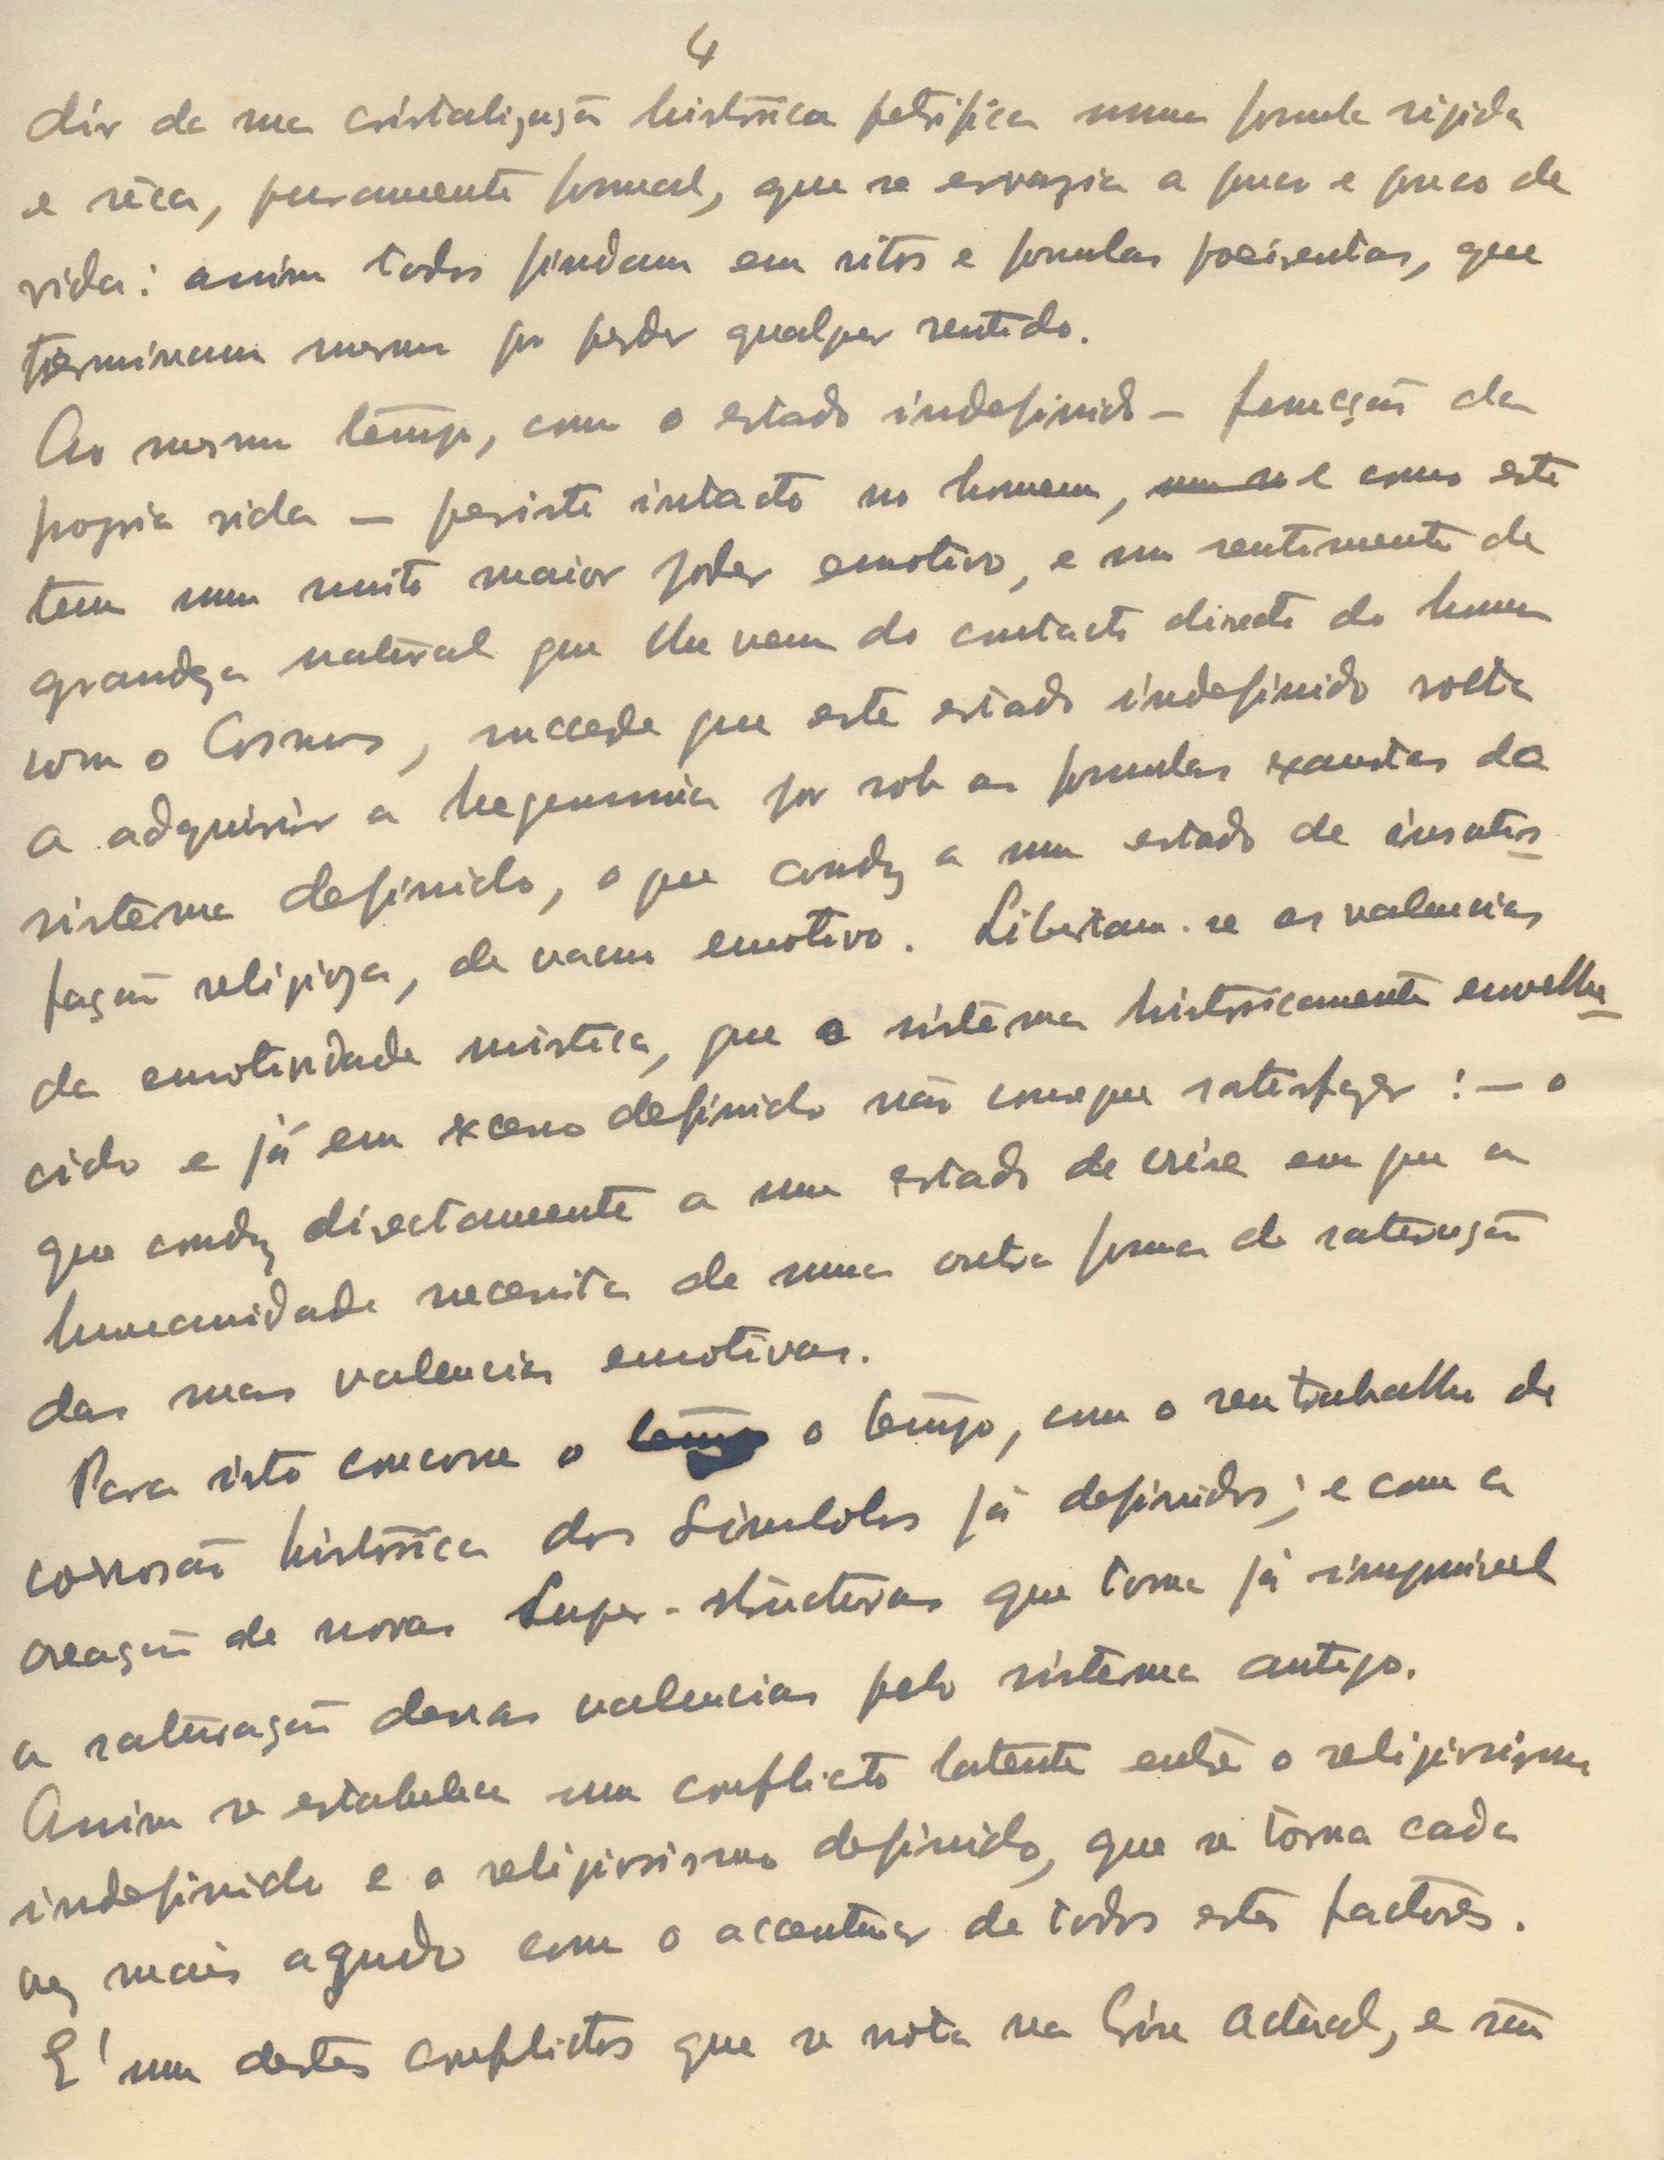 4
dir da sua cristalização histórica petrifica numa formula rigida
e sêca, puramente formal, que se esvazia a pouco e pouco de
vida: assim todos findam em ritos e formulas poeirentas, que
terminam mesmo por perder qualquer sentido.
Ao mesmo tempo, como o estado indefinido — função da
propria vida — persiste intacto no homem, e como este
tem um muito maior poder emotivo, e um sentimento de
grandeza natural que lhe vem do contacto directo do homem
com o Cosmos, succede que este estado indefinido volta
a adquirir a hegemonia por sob as formulas exaustas do
sistema definido, o que conduz a um estado de insatis-
fação religiosa, de vacuo emotivo. Libertam-se as valencias
da emotividade mistica, que o sistema históricamente envelhe-
cido e já em excesso definido não consegue satisfazer: — o
que conduz directamente a um estado de crise em que a
humanidade necessita de uma outra forma de saturação
das suas valencias emotivas.
Para isto concorre o o tempo, com o seu trabalho de
corrosão histórica dos Simbolos já definidos; e com a
creação de novas Super-structuras que torna já impossivel
a saturação dessas valencias pelo sistema antigo.
Assim se estabelece um conflicto latente entre o religiosismo
indefinido e o religiosismo definido, que se torna cada
vez mais agudo com o accentuar de todos estes factores.
E' um destes conflictos que se nota na Crise actual, e são